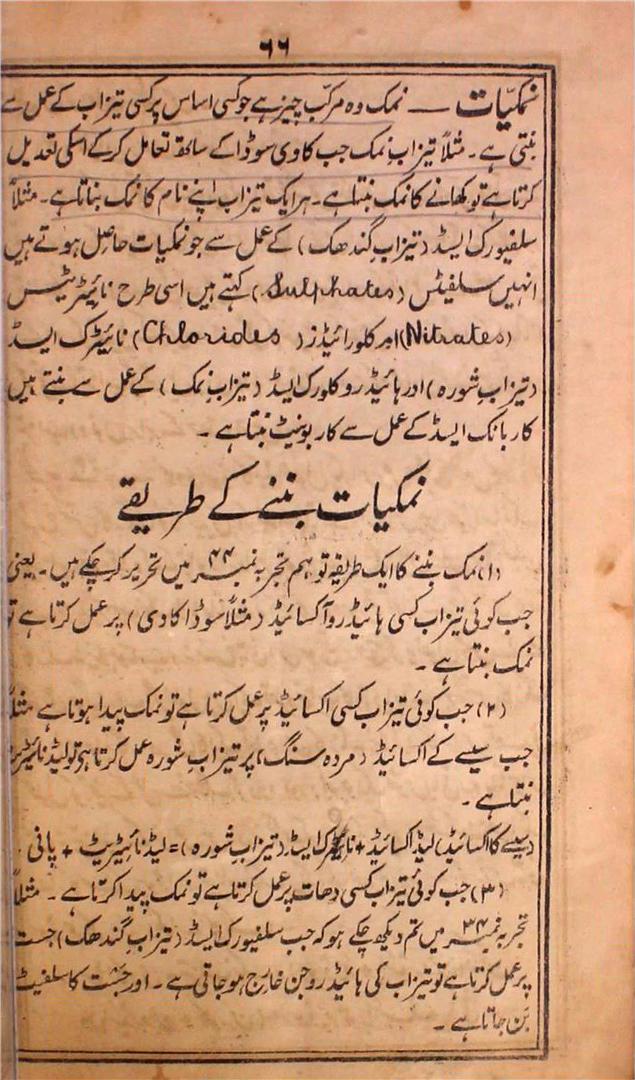 ۶۶
نمکیّات — نمک وہ مرکّب چیز ہے جو کسی اساس پر کسی تیزاب کے عمل سے
بنتی ہے۔ مثلاً تیزابِ نمک جب کاوی سوڈا کے ساتھ تعامل کر کے اسکی تعدیل
کرتا ہے تو کھانے کا نمک بنتا ہے۔ ہر ایک تیزاب اپنے نام کا نمک بناتا ہے۔ مثلاً
سلفیورک ایسڈ (تیزاب گندھک) کے عمل سے جو نمکیات حاصل ہوتے ہیں
انہیں سلفیٹس (Sulphates) کہتے ہیں اسی طرح نائیٹریٹس
(Nitrates) اور کلورائیڈز (Chlorides) نائیٹرک ایسڈ
(تیزاب شورہ) اور ہائیڈروکلورک ایسڈ (تیزاب نمک) کے عمل سے بنتے ہیں
کاربانک ایسڈ کے عمل سے کاربونیٹ بنتا ہے۔
نمکیات بننے کے طریقے
(۱) نمک بننے کا ایک طریقہ تو ہم تجربہ نمبر ۴۴ میں تحریر کر چکے ہیں۔ یعنی
جب کوئی تیزاب کسی ہائیڈرو آکسائیڈ (مثلاً سوڈا کاوی) پر عمل کرتا ہے تو
نمک بنتا ہے۔
(۲) جب کوئی تیزاب کسی اکسائیڈ پر عمل کرتا ہے تو نمک پیدا ہوتا ہے مثلاً
جب سیسے کے اکسائیڈ (مردہ سنگ) پر تیزاب شورہ عمل کرتا ہی تو لیڈ نائیٹریٹ
بنتا ہے۔
(سیسے کا اکسائیڈ) لیڈ اکسائیڈ + نائیٹرک ایسڈ (تیزاب شورہ) = لیڈ نائیٹریٹ + پانی۔
(۳) جب کوئی تیزاب کسی دھات پر عمل کرتا ہے تو نمک پیدا کرتا ہے۔ مثلاً
تجربہ نمبر ۳۴ میں تم دیکھ چکے ہو کہ جب سلفیورک ایسڈ (تیزاب گندھک) جست
پر عمل کرتا ہے تو تیزاب کی ہائیڈروجن خارج ہو جاتی ہے۔ اور جست کا سلفیٹ
بن جاتا ہے۔